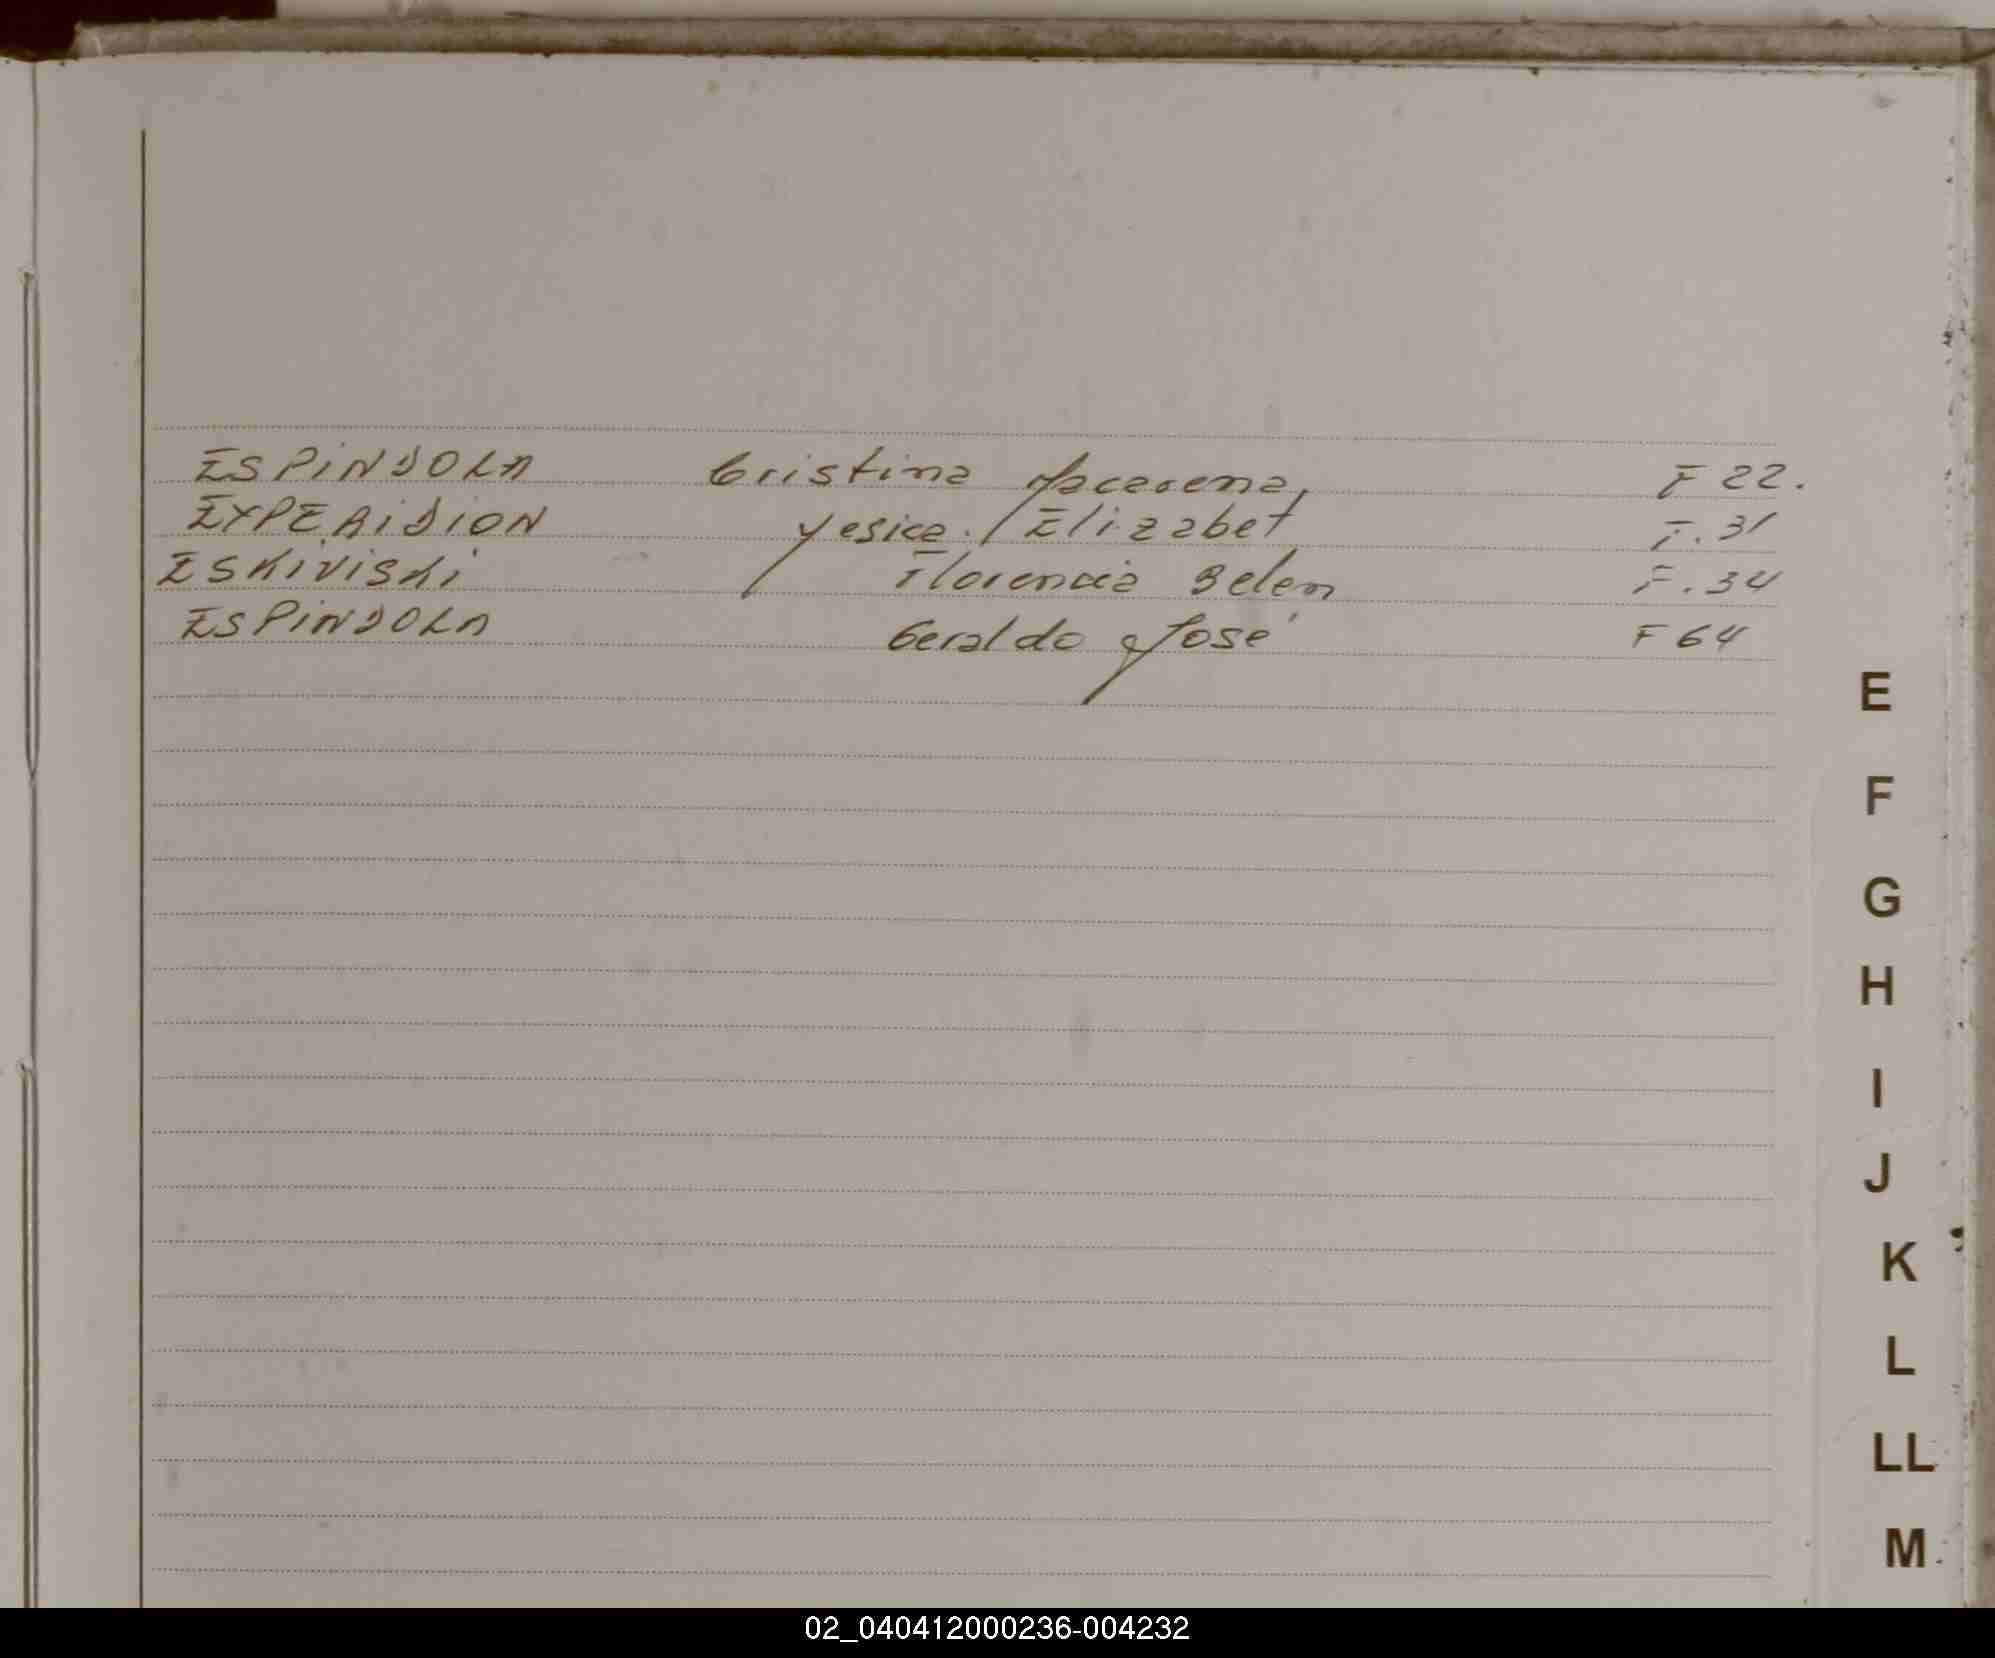 ESPiNDOLA Cristina Macarena F 22.
EXPERiDiON Yesica Elizabet F. 31
ESKiViSKi Florencia Belen F. 34
ESPiNDOLA Geraldo José F 64
E
F
G
H
I
J
K
L
LL
M
02_040412000236-004232